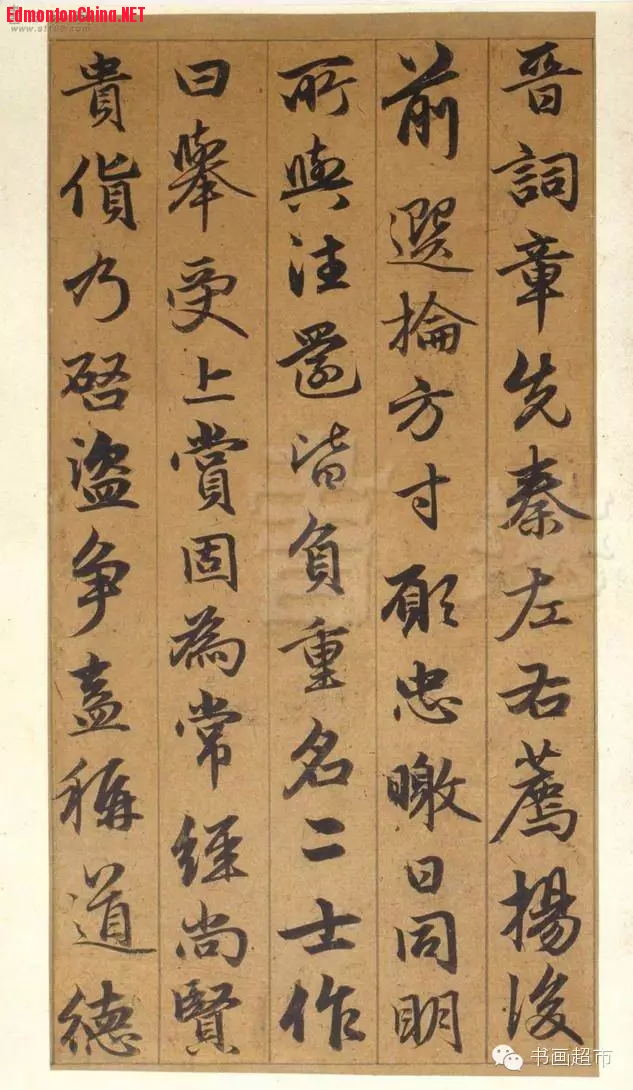 EdmontonChina.NET
晉詞章先秦左右薦揚後
前選掄方寸願忠暾日同明
所與注選皆負重名二士作
曰舉受上賞固為常經尚賢
貴貨乃啓盜爭蓋稱道德
书画超市